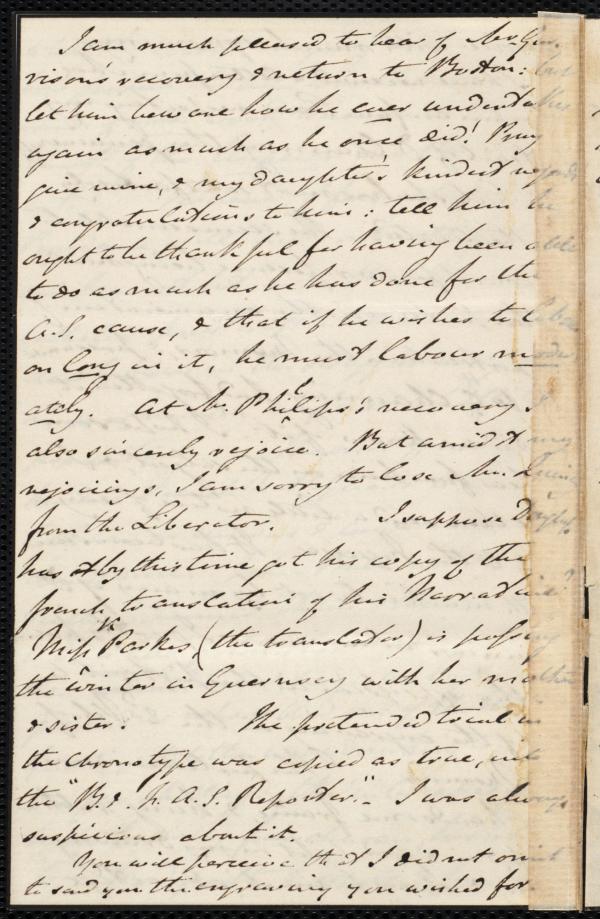 I am much pleased to hear of Mr. Gar-
rison's recovery & return to Boston: but
let him beware how he ever undertakes
again as much as he once did! Pray
give mine, & my daughter's kindest regards
& congratulations to him: tell him he
ought to be thankful for having been able
to do as much as he has done for the
A.S. cause, & that if he wishes to labour
on long in it, he must labour moder-
ately. At Mr. Philips's recovery I
also sincerely rejoice. But amidst my
rejoicings, I am sorry to lose Mr. Quincy
from the Liberator. I suppose Douglass
has by this time got his copy of the
french translation of his Narrative?
Miss Parkes, (the translator) is passing
the winter in Guernsey with her mother
& sister. The pretended trial in
the Chronotype was copied as true, into
the "B. & F. A. S. Reporter." - I was always
suspicious about it.
You will perceive that I did not omit
to send you the engraving you wished for